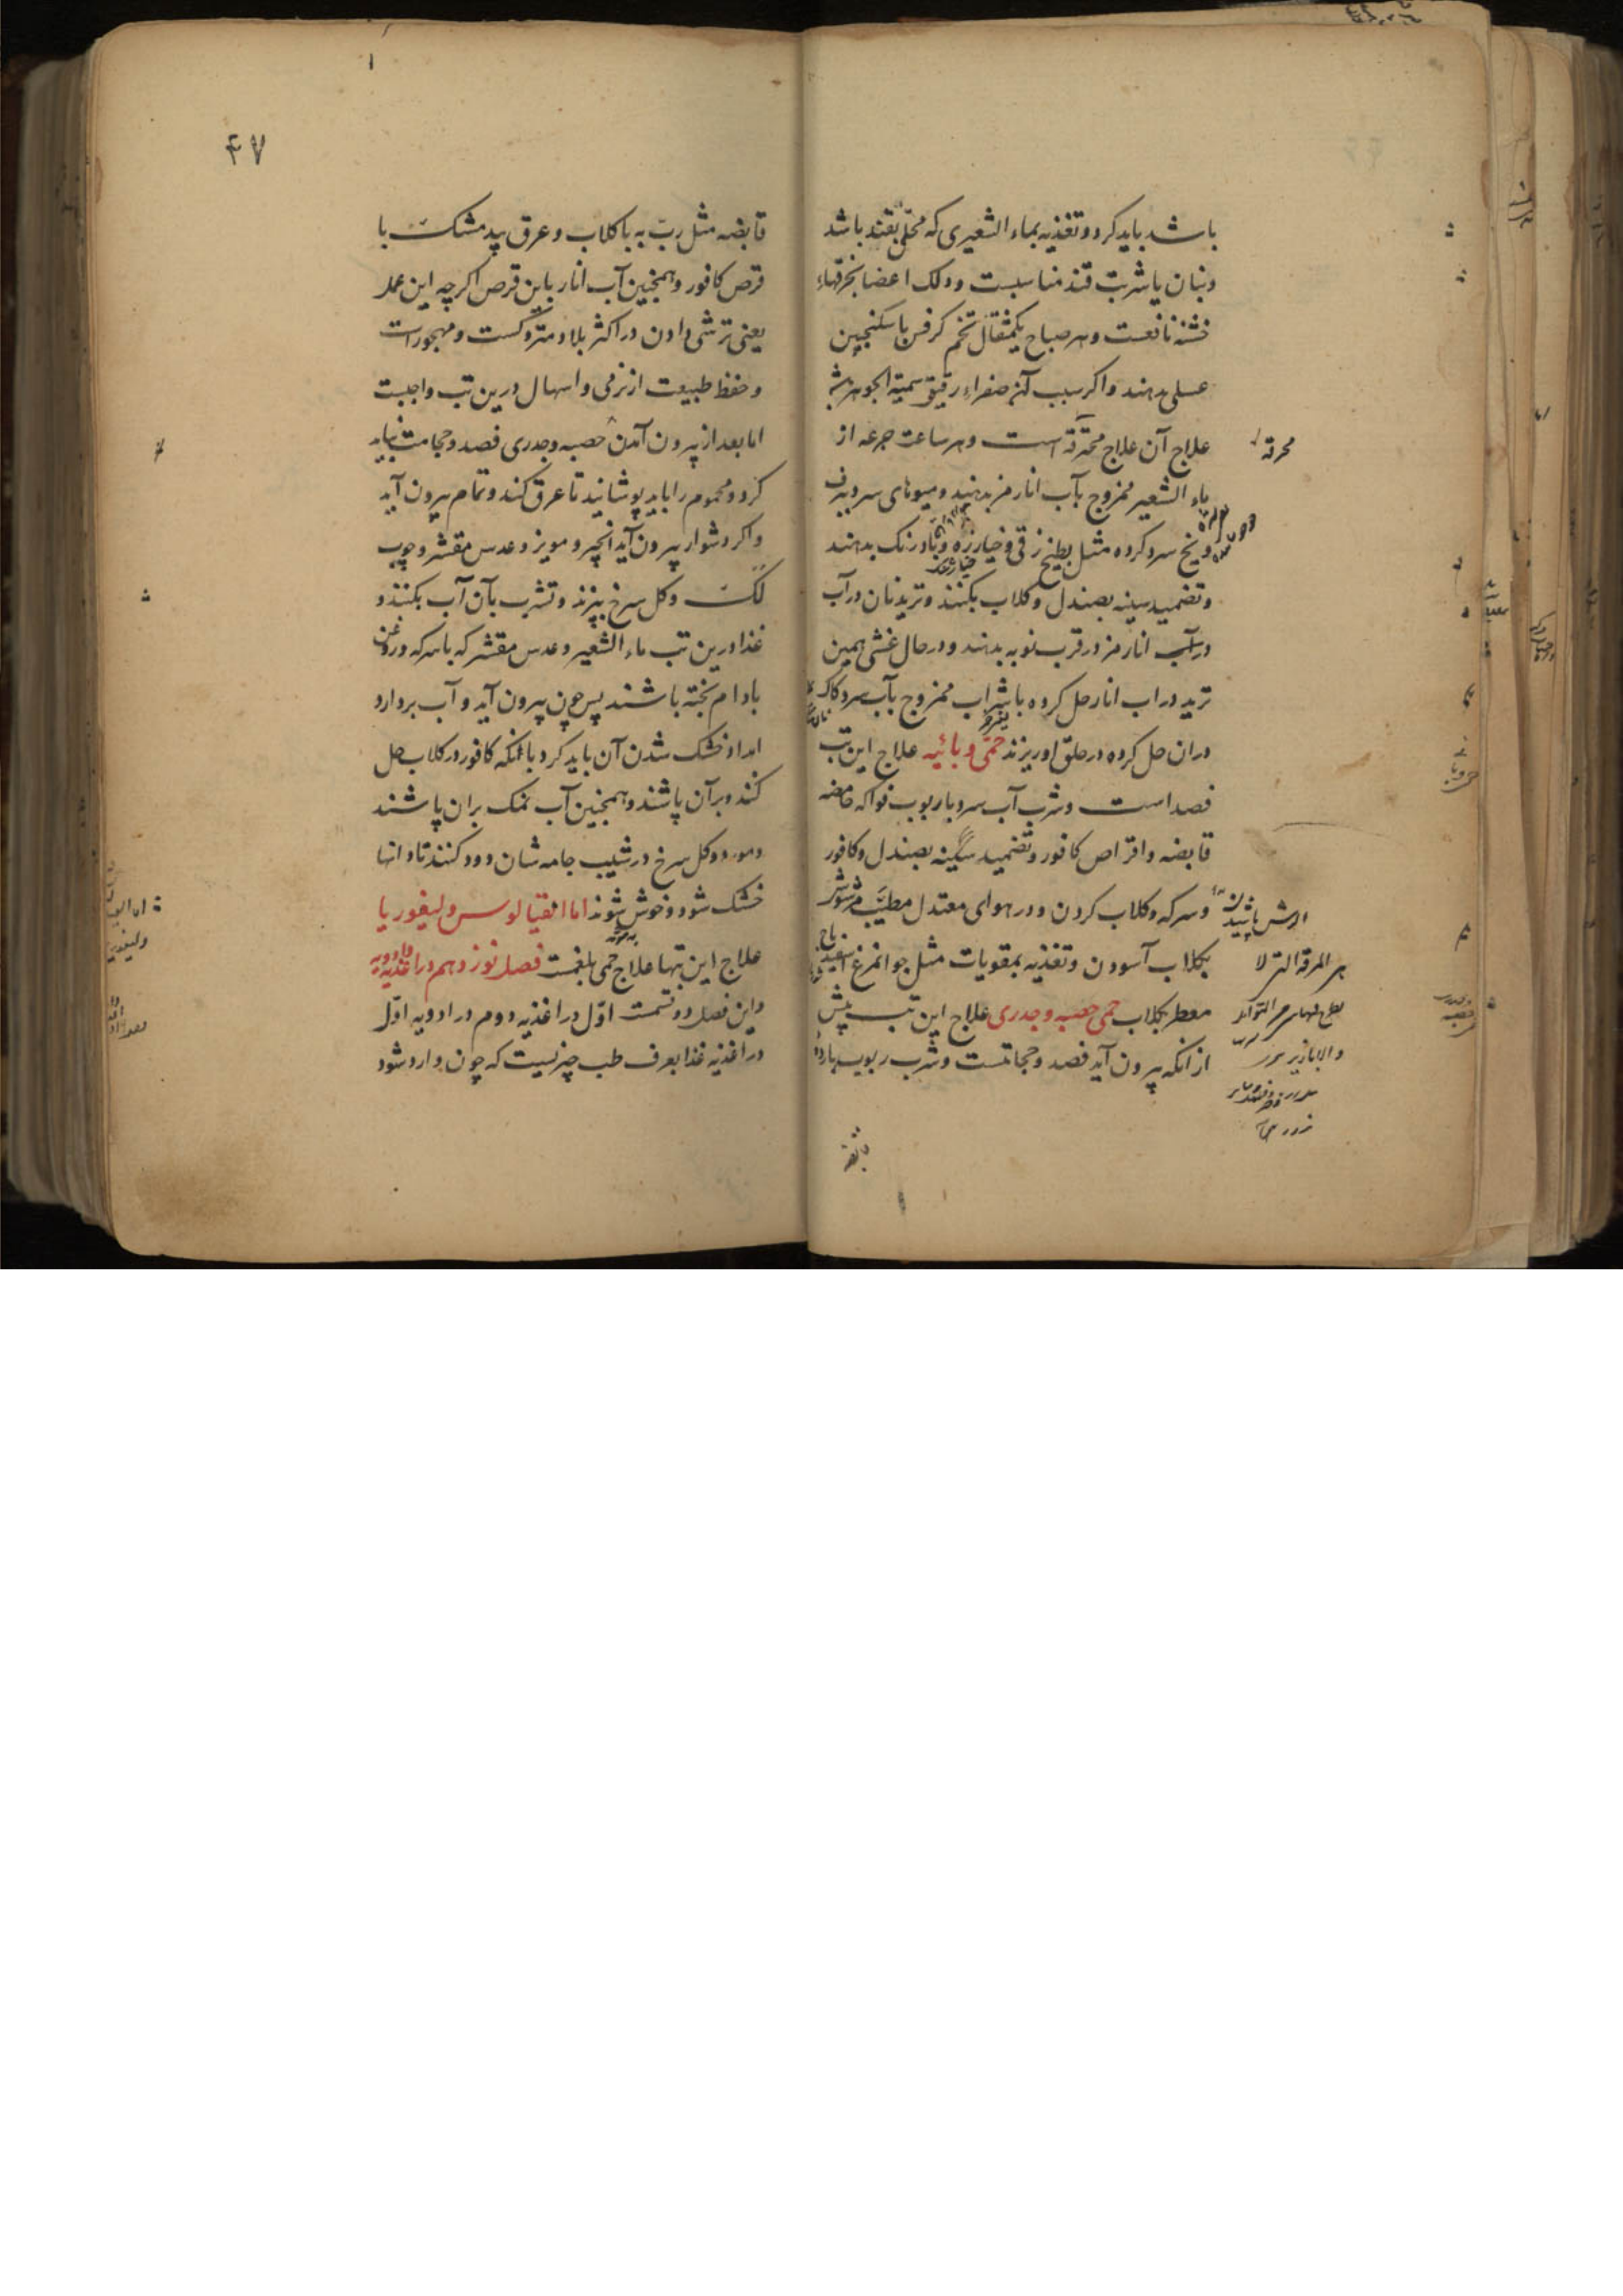 باشد باید کرد و تغذیه بماء الشعیری که محلّی بقند باشد
و بنان یا شربت قند مناسبست و دلک اعضا بخرقهاء
خشنه نافعست و هر صباح یکمثقال تخم کرفس با سکنجبین
عسلی دهند و اکر سبب آن صفراء رقیق سمیة الجوهر باشد
علاج آن علاج محترقه است و هر ساعت جرعه از
محرقه
ماء الشعیر ممزوج بآب انار مز بدهند و میوهای سرد ببرف
و یخ سرد کرده مثل بطیخ زقی و خیارزه و بادرنک بدهند
و تضمید سینه بصندل و کلاب بکنند و ترید نان در آب
در آب انار مز در قرب نوبه بدهند و در حال غشی همین
ترید در اب انار حل کرده با شراب ممزوج بآب سرد کاک
دران حل کرده در حلق او ریزند حمّی وبائیه علاج این تب
فصد است و شرب آب سرد با ربوب فواکه حامضه
قابضه و اقراص کافور و تضمید سینه بصندل و کافور
و سرکه و کلاب کردن و در هوای معتدل مطیّب مرشوش
بکلاب آسودن و تغذیه بمقویات مثل جوانمرغ
معطر بکلاب حمی حصبه و جدری علاج این تب پیش
از انکه بیرون آید فصد و حجامتست و شرب ربوب بارده
قابضه
۴۷
قابضه مثل ربّ به با کلاب و عرق بید مشک با
قرص کافور و همچنین آب انار باین قرص اکرچه این عمل
یعنی ترشی دادن در اکثر بلاد متروکست و مهجور است
و حفظ طبیعت از نرمی و اسهال درین تب واجبست
اما بعد از بیرون آمدن حصبه و جدری فصد و حجامت نباید
کرد و محموم را باید پوشانید تا عرق کند و تمام بیرون آید
و اکر دشوار بیرون آید انجیر و مویز و عدس مقشر و چوب
لک و کل سرخ بپزند و تشرب بآن آب بکنند و
غذا درین تب ماء الشعیر و عدس مقشر که با سرکه و روغن
بادام پخته باشند پس چون بیرون آید و آب بردارد
امداد خشک شدن آن باید کرد بانکه کافور در کلاب حل
کند و بر آن پاشند و همچنین آب نمک بران پاشند
و مورد و کل سرخ در شیب جامه شان دود کنند تا دانها
خشک شود و خوش شوند اما انقیالوس و لیفوریا
علاج این تبها علاج حمی بلغمست فصل نوزدهم در اغذیه و ادویه
و این فصل دو قسمت اوّل در اغذیه دوم در ادویه اوّل
در اغذیه غذا بعرف طب چیزیست که چون وارد شود